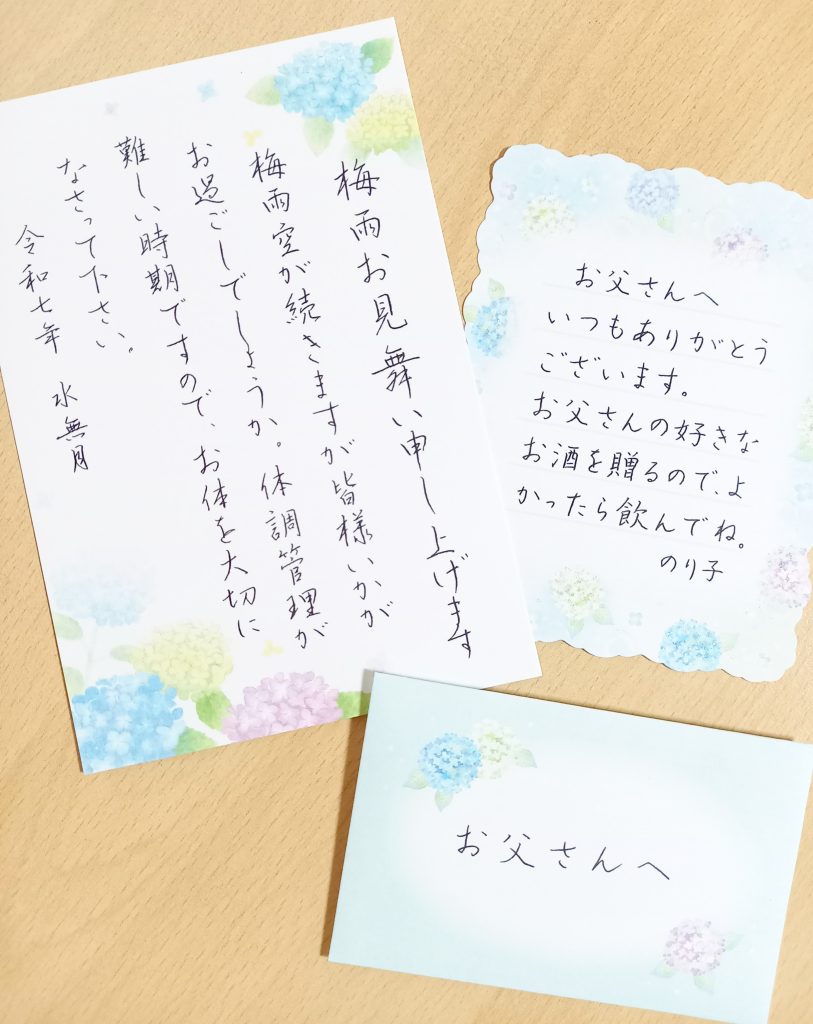 梅雨お見舞い申し上げます
梅雨空が続きますが皆様いかが
お過ごしでしょうか。体調管理が
難しい時期ですので、お体を大切に
なさって下さい。
令和七年 水無月
お父さんへ
いつもありがとう
ございます。
お父さんの好きな
お酒を贈るので、よ
かったら飲んでね。
のり子
お父さんへ